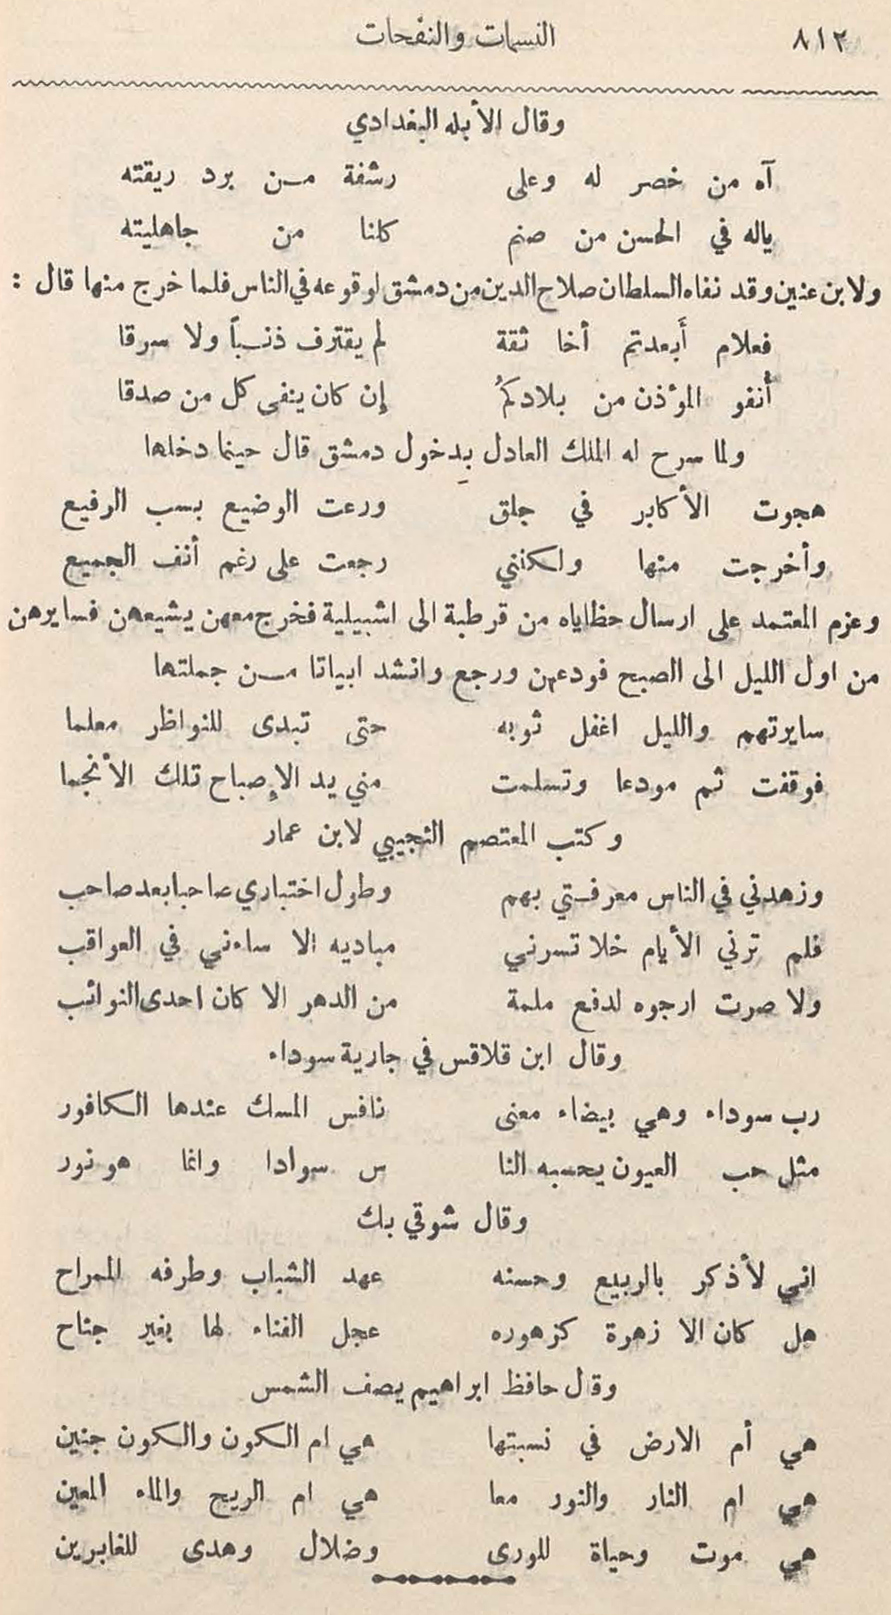 ٨١٢ النسمات والنفحات
وقال الأبله البغدادي
آه من خصر له وعلى رشفة من برد ريقته
ياله في الحسن من صنم كلنا من جاهليته
ولابن عنين وقد نفاه السلطان صلاح الدين من دمشق لوقوعه في الناس فلما خرج منها قال :
فعلام أَبعدتم أخا ثقة لم يقترف ذنباً ولا سرقا
أُنفو المؤذن من بلادكمُ إن كان ينفى كل من صدقا
ولما سرح له الملك العادل بدخول دمشق قال حينما دخلها
هجوت الأكابر في جلق ورعت الوضيع بسب الرفيع
وأخرجت منها ولكنني رجعت على رغم أنف الجميع
وعزم المعتمد على ارسال حظاياه من قرطبة الى اشبيلية فخرج معهن يشيعهن فسايرهن
من اول الليل الى الصبح فودعهن ورجع وانشد ابياتا من جملتها
سايرتهم والليل اغفل ثوبه حتى تبدى للنواظر معلما
فوقفت ثم مودعا وتسلمت مني يد الإصباح تلك الأنجما
وكتب المعتصم التجيبي لابن عمار
وزهدني في الناس معرفتي بهم وطول اختباري صاحبا بعد صاحب
فلم ترني الأيام خلا تسرني مباديه الا ساءني في العواقب
ولا صرت ارجوه لدفع ملمة من الدهر الا كان احدى النوائب
وقال ابن قلاقس في جارية سوداء
رب سوداء وهي بيضاء معنى نافس المسك عندها الكافور
مثل حب العيون يحسبه النا س سوادا وانما هو نور
وقال شوقي بك
اني لأذكر بالربيع وحسنه عهد الشباب وطرفه الممراح
هل كان الا زهرة كزهوره عجل الفناء لها بغير جناح
وقال حافظ ابراهيم يصف الشمس
هي أم الارض في نسبتها هي ام الكون والكون جنين
هي ام النار والنور معا هي ام الريح والماء المعين
هي موت وحياة للورى وضلال وهدى للغابرين